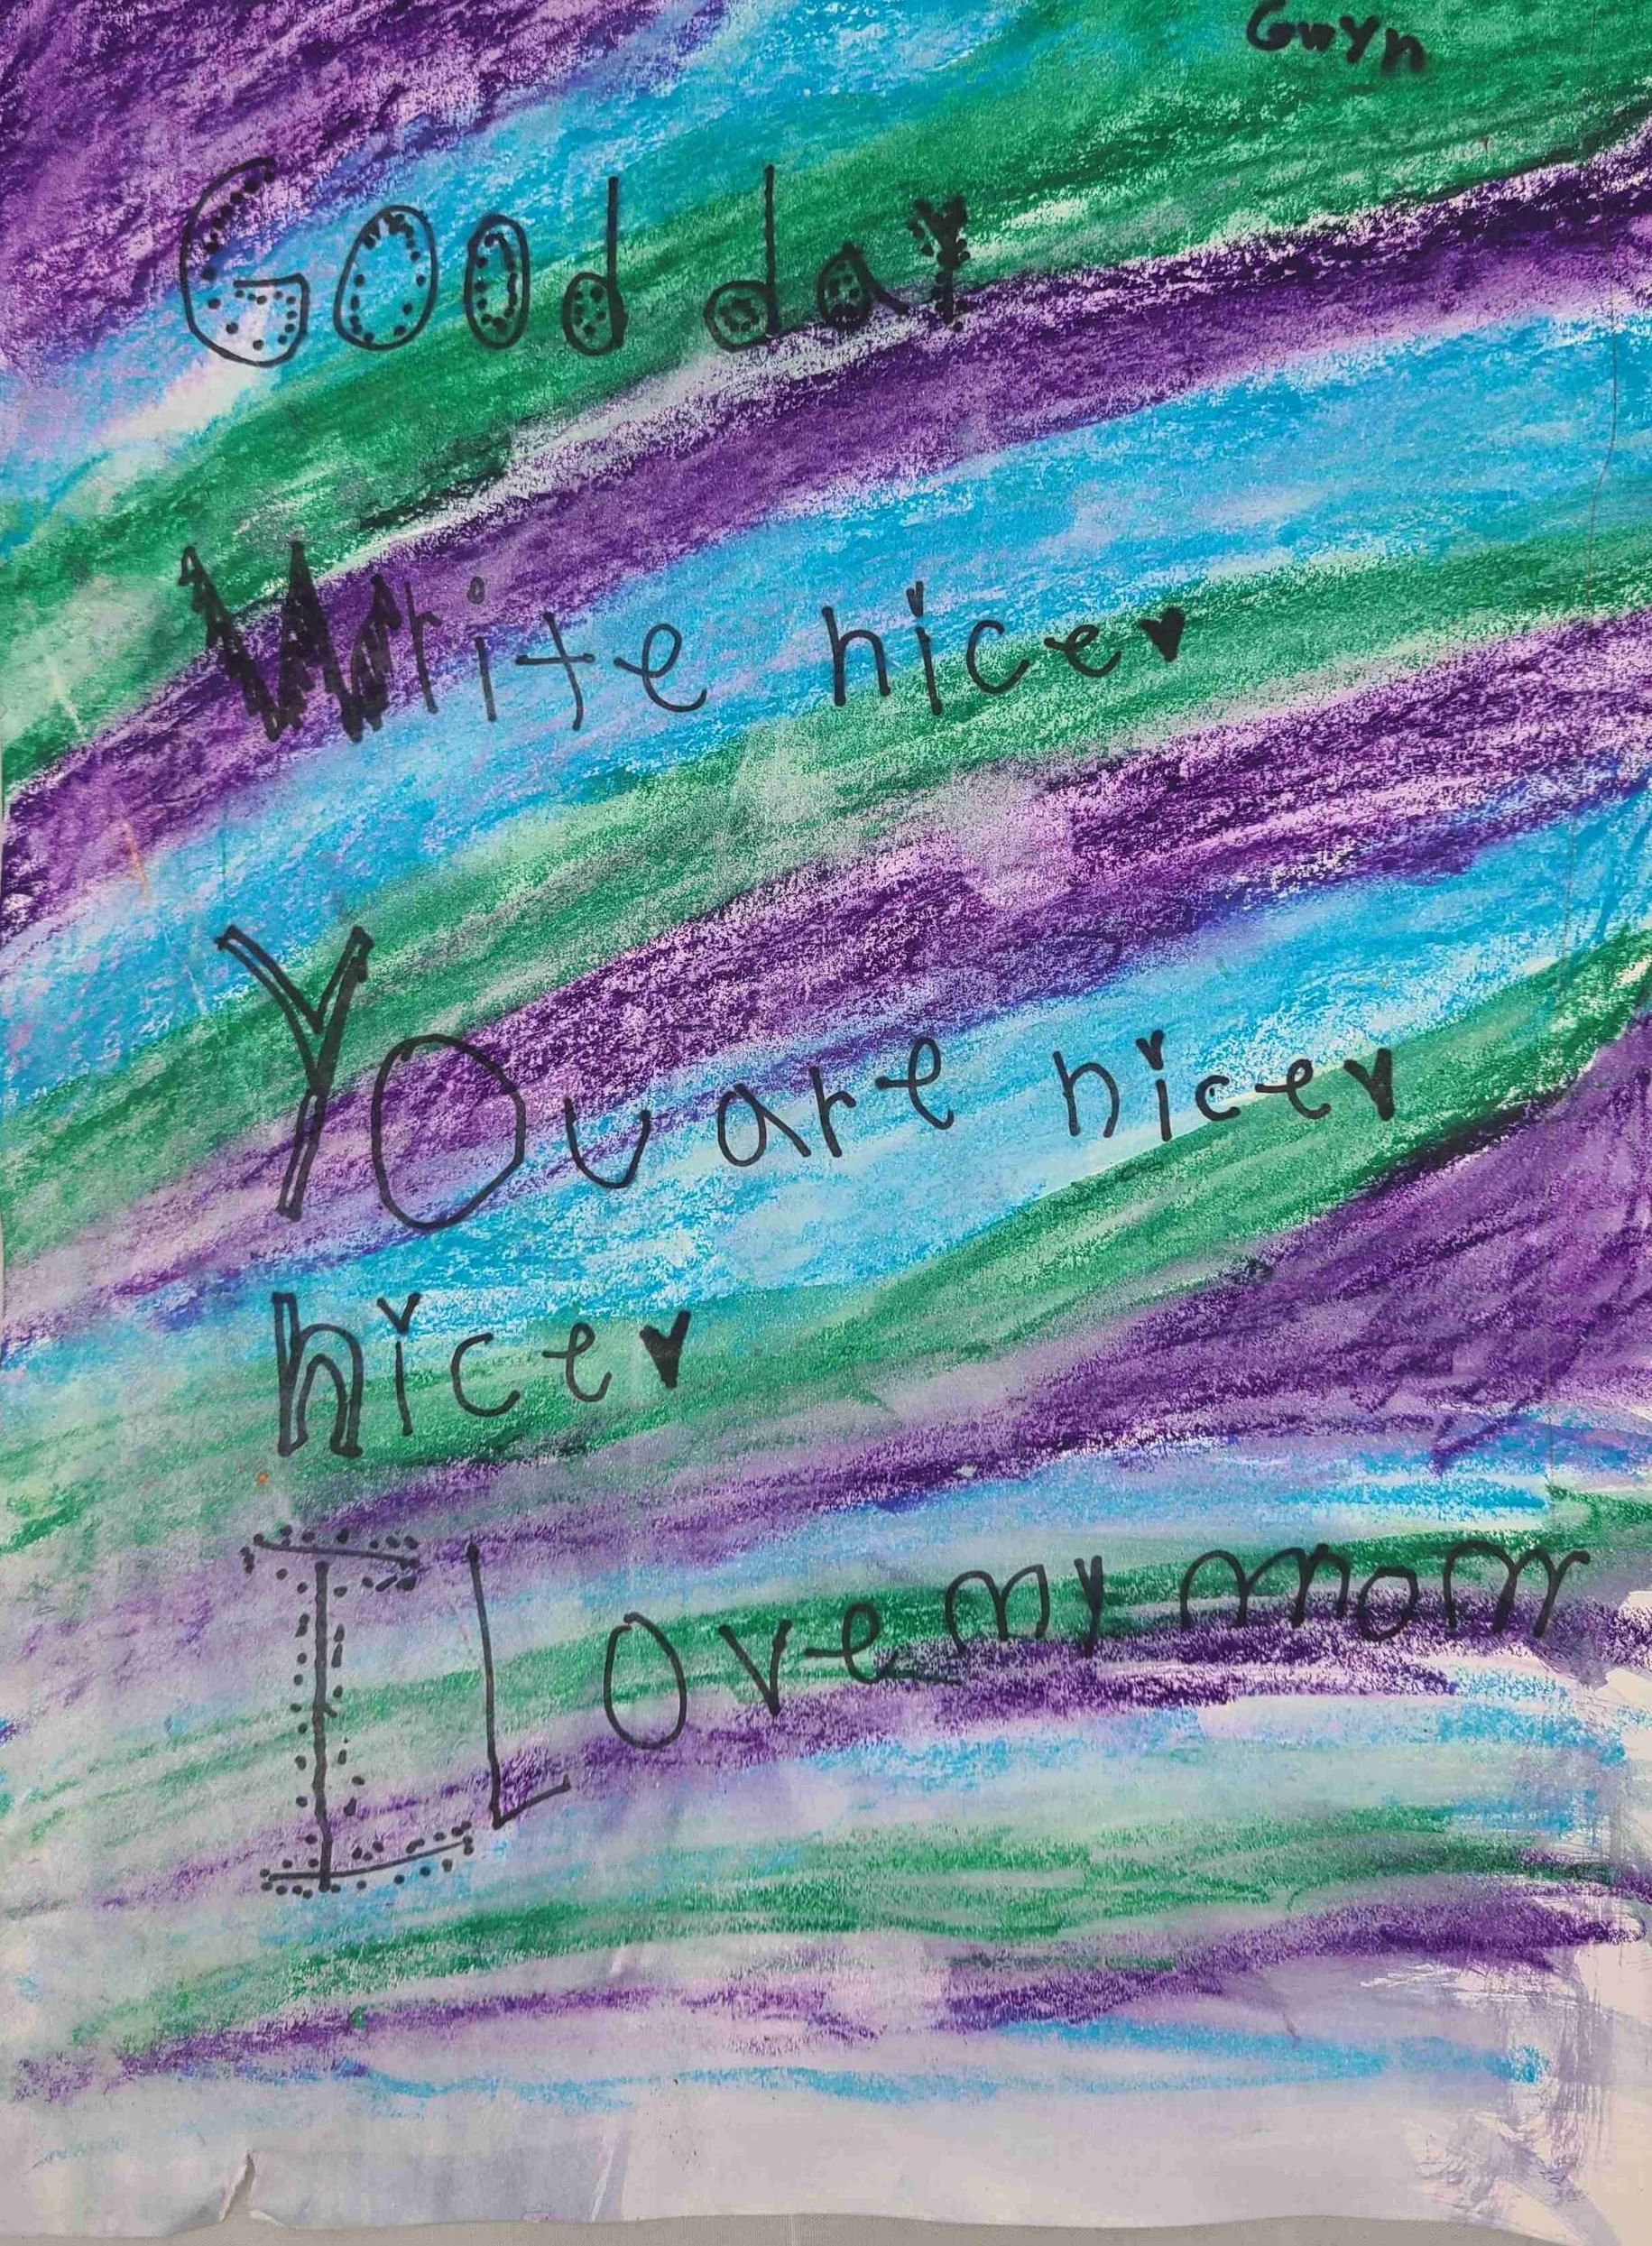 Gwyn
Good day
Write nicer
You are nicer
nicer
I Love my mom